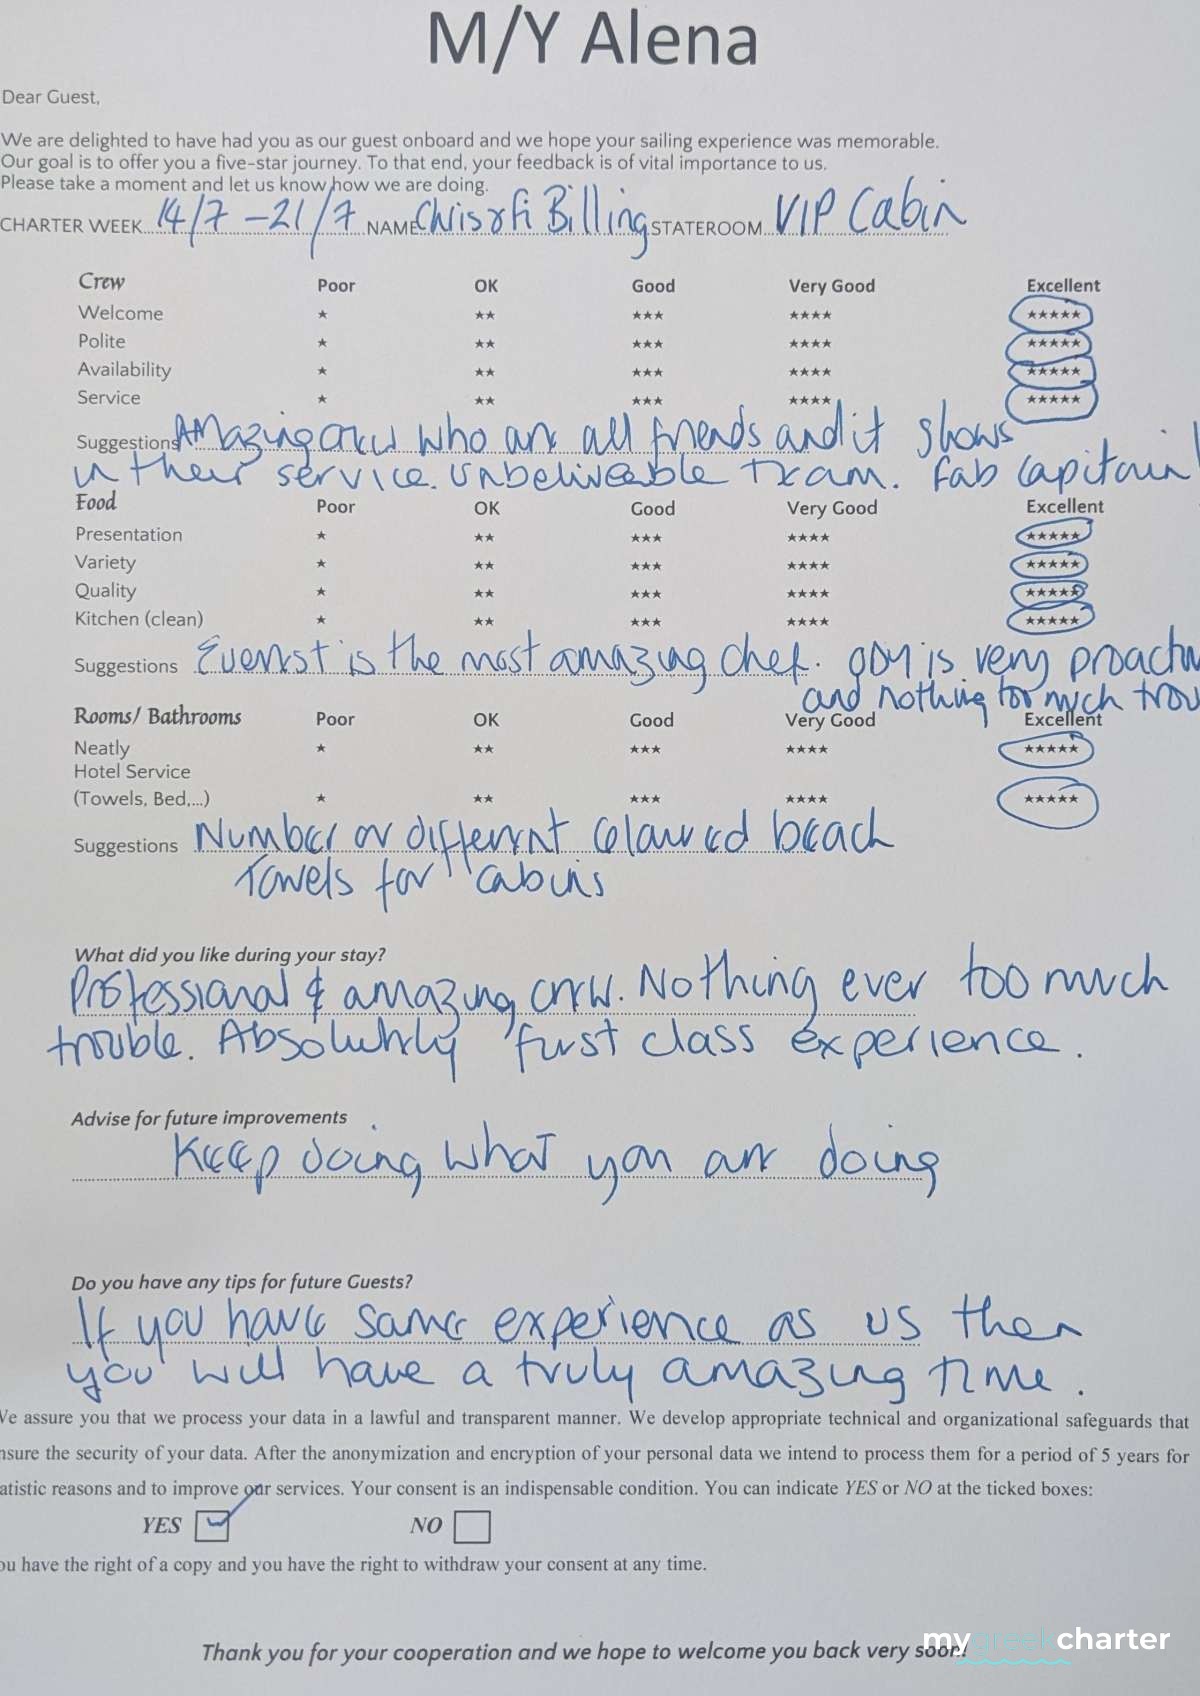 M/Y Alena
Dear Guest,
We are delighted to have had you as our guest onboard and we hope your sailing experience was memorable.
Our goal is to offer you a five-star journey. To that end, your feedback is of vital importance to us.
Please take a moment and let us know how we are doing.
CHARTER WEEK 14/7 - 21/7 NAME Billing STATEROOM VIP Cabin
Crew Poor OK Good Very Good Excellent
Welcome ★ ★★ ★★★ ★★★★ ★★★★★
Polite ★ ★★ ★★★ ★★★★ ★★★★★
Availability ★ ★★ ★★★ ★★★★ ★★★★★
Service ★ ★★ ★★★ ★★★★ ★★★★★
Suggestions Amazing crew who are all friends and it shows
in their service. Unbeliveable team. Fab capitain!
Food Poor OK Good Very Good Excellent
Presentation ★ ★★ ★★★ ★★★★ ★★★★★
Variety ★ ★★ ★★★ ★★★★ ★★★★★
Quality ★ ★★ ★★★ ★★★★ ★★★★★
Kitchen (clean) ★ ★★ ★★★ ★★★★ ★★★★★
Suggestions is the most amazing chef. is very proactiv
and nothing too much trou
Rooms/ Bathrooms Poor OK Good Very Good Excellent
Neatly ★ ★★ ★★★ ★★★★ ★★★★★
Hotel Service
(Towels, Bed,...) ★ ★★ ★★★ ★★★★ ★★★★★
Suggestions Number or different coloured beach
Towels for cabins
What did you like during your stay?
Professional & amazing crew. Nothing ever too much
trouble. Absolutely first class experience.
Advise for future improvements
Keep doing what you are doing
Do you have any tips for future Guests?
If you have same experience as us then
you will have a truly amazing time.
We assure you that we process your data in a lawful and transparent manner. We develop appropriate technical and organizational safeguards that
nsure the security of your data. After the anonymization and encryption of your personal data we intend to process them for a period of 5 years for
atistic reasons and to improve our services. Your consent is an indispensable condition. You can indicate YES or NO at the ticked boxes:
YES NO
ou have the right of a copy and you have the right to withdraw your consent at any time.
Thank you for your cooperation and we hope to welcome you back very soon!
mygreekcharter